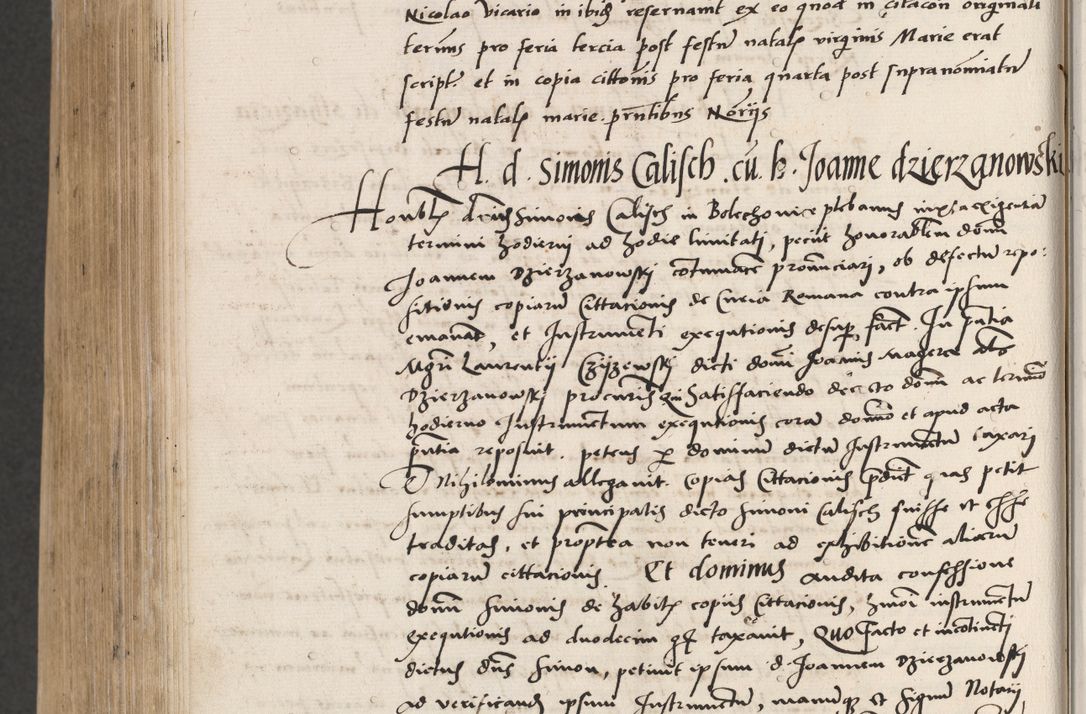 Nicolao vicario in ibid reservant ex eo quod in citacon originali
termis pro feria tercia post festu natal virginis Marie erat
script. et in copia cittonis pro feria quarta post supranomiatu
festu natal marie. pntibus Noriis
H. d. Simonis Calisch. cu. h. Joanne dzierzanowski
Honbl dnus Simonis Calisch in Bolechovice plebanus iuxta exigentia
termini hodierni ad hodie limitati, peciit honorablem domi
Joannem Dzierzanowskj contumace pronunciari, ob defectu repo:
sitionis copiaru Cittacionis de Curia Romana contra ipsum
emanat, et Instrumenti exequtionis desup fact. In pntia
Mgri Laurentij Czyzewskj dicti domi Joannis
Dzierzanowskj procuris qui Satisfaciendo decreto domi ac termio
hodierno Instrumentum exequtionis cora domio et apud acta
pntia reposuit. petens p dominum dictu Instrumentu taxari
Nihilominus allegavit. Copias Cittacionis quas petit
sumptibus sui principalis dicto Simoni Calisch fuisse et esse
traditas, et proptea non teneri ad exhibitione aliaru
copiaru cittacionis. Et dominus audita confessione
domi Simonis de habit copiis Cittacionis, hmoi instrumentu
exequtionis ad duodecim gr taxavit, Quo facto et incontinenti
dictus dns Simon, petivit ipsum d. Joannem Dzierzanowskj
ad verificand ipsum Instrumentu, manumq et Signum Notarij